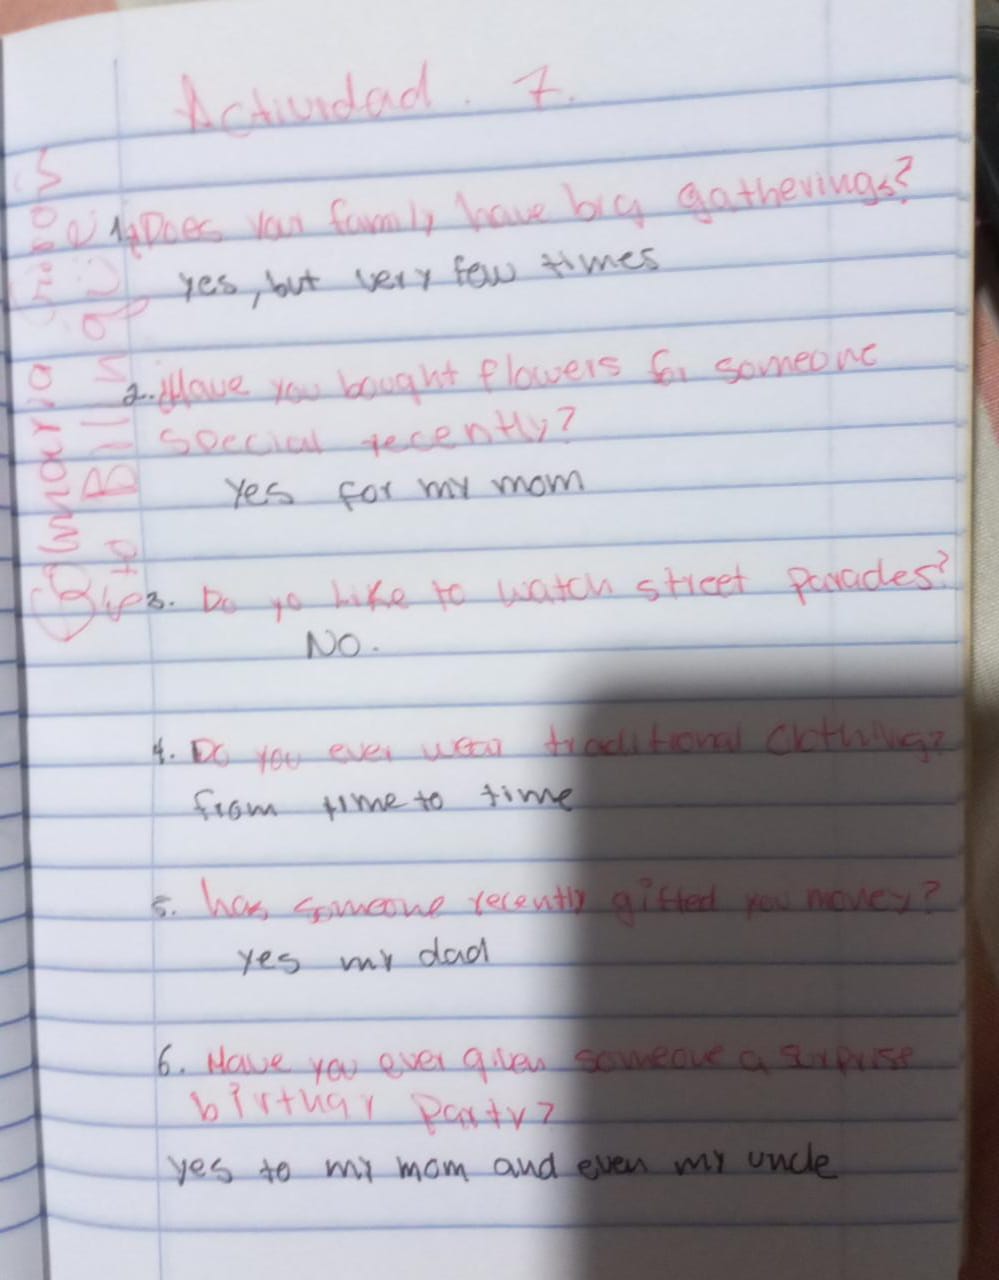 Actividad. 7.
1. Does your family have big gatherings?
yes, but very few times
2. Have you bought flowers for someone
special recently?
Yes for my mom
3. Do yo like to watch street parades?
NO.
4. Do you ever wear traditional clothing?
from time to time
5. has someone recently gifted you money?
yes my dad
6. Have you ever given someone a surprise
birthay party?
yes to my mom and even my uncle